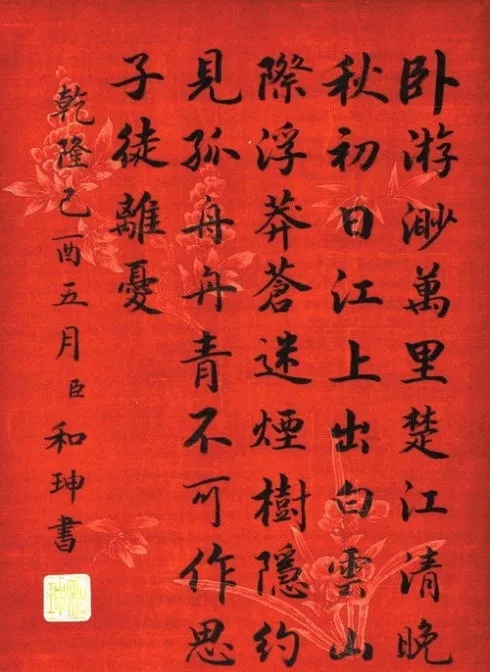 卧游渺萬里楚江清晚
秋初日江上出白雲山
際浮莽蒼迷煙樹隱約
見孤舟丹青不可作思
子徒離憂
乾隆己酉五月臣和珅書